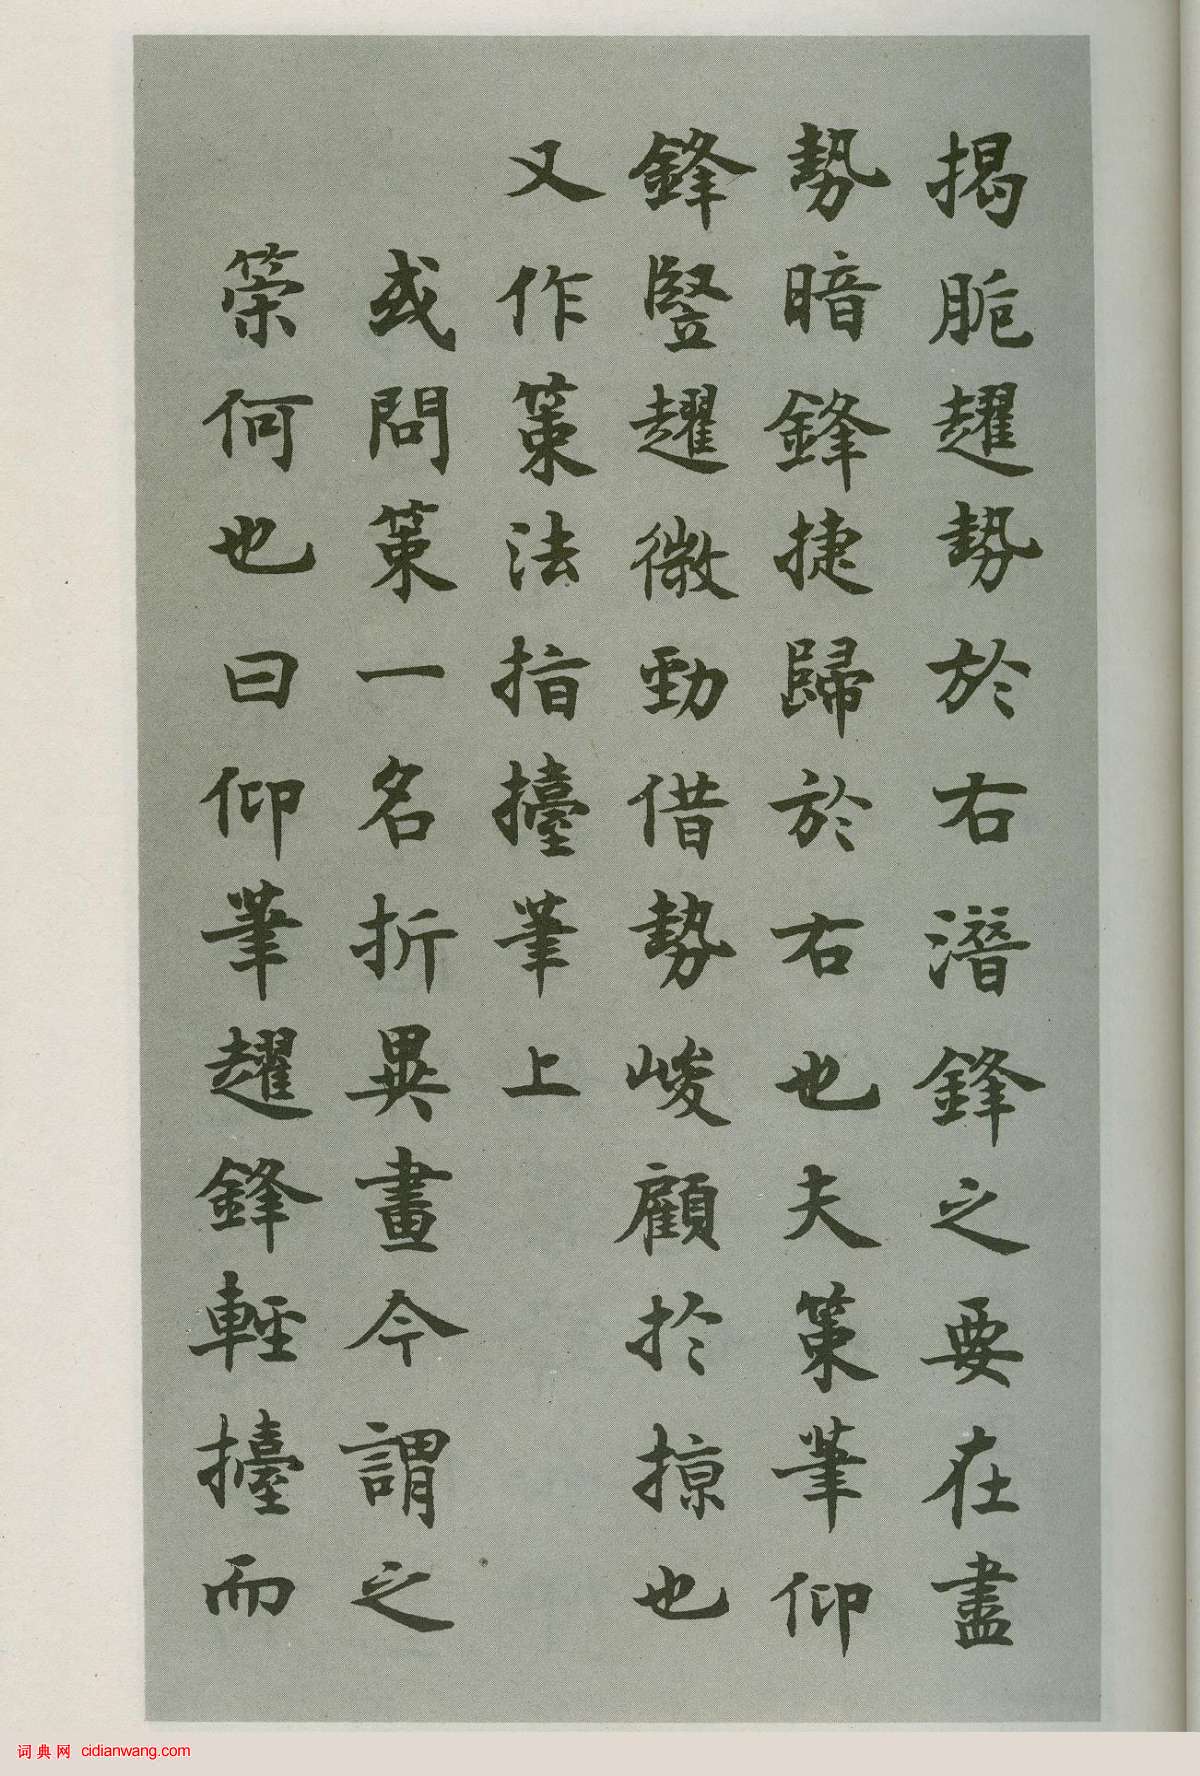 揭脆趯勢於右潛鋒之要在盡
勢暗鋒捷歸於右也夫策筆仰
鋒竪趯微勁借勢峻顧於掠也
又作策法指擡筆上
或問策一名折異畫今謂之
策何也曰仰筆趯鋒輕擡而
词典网 cidianwang.com